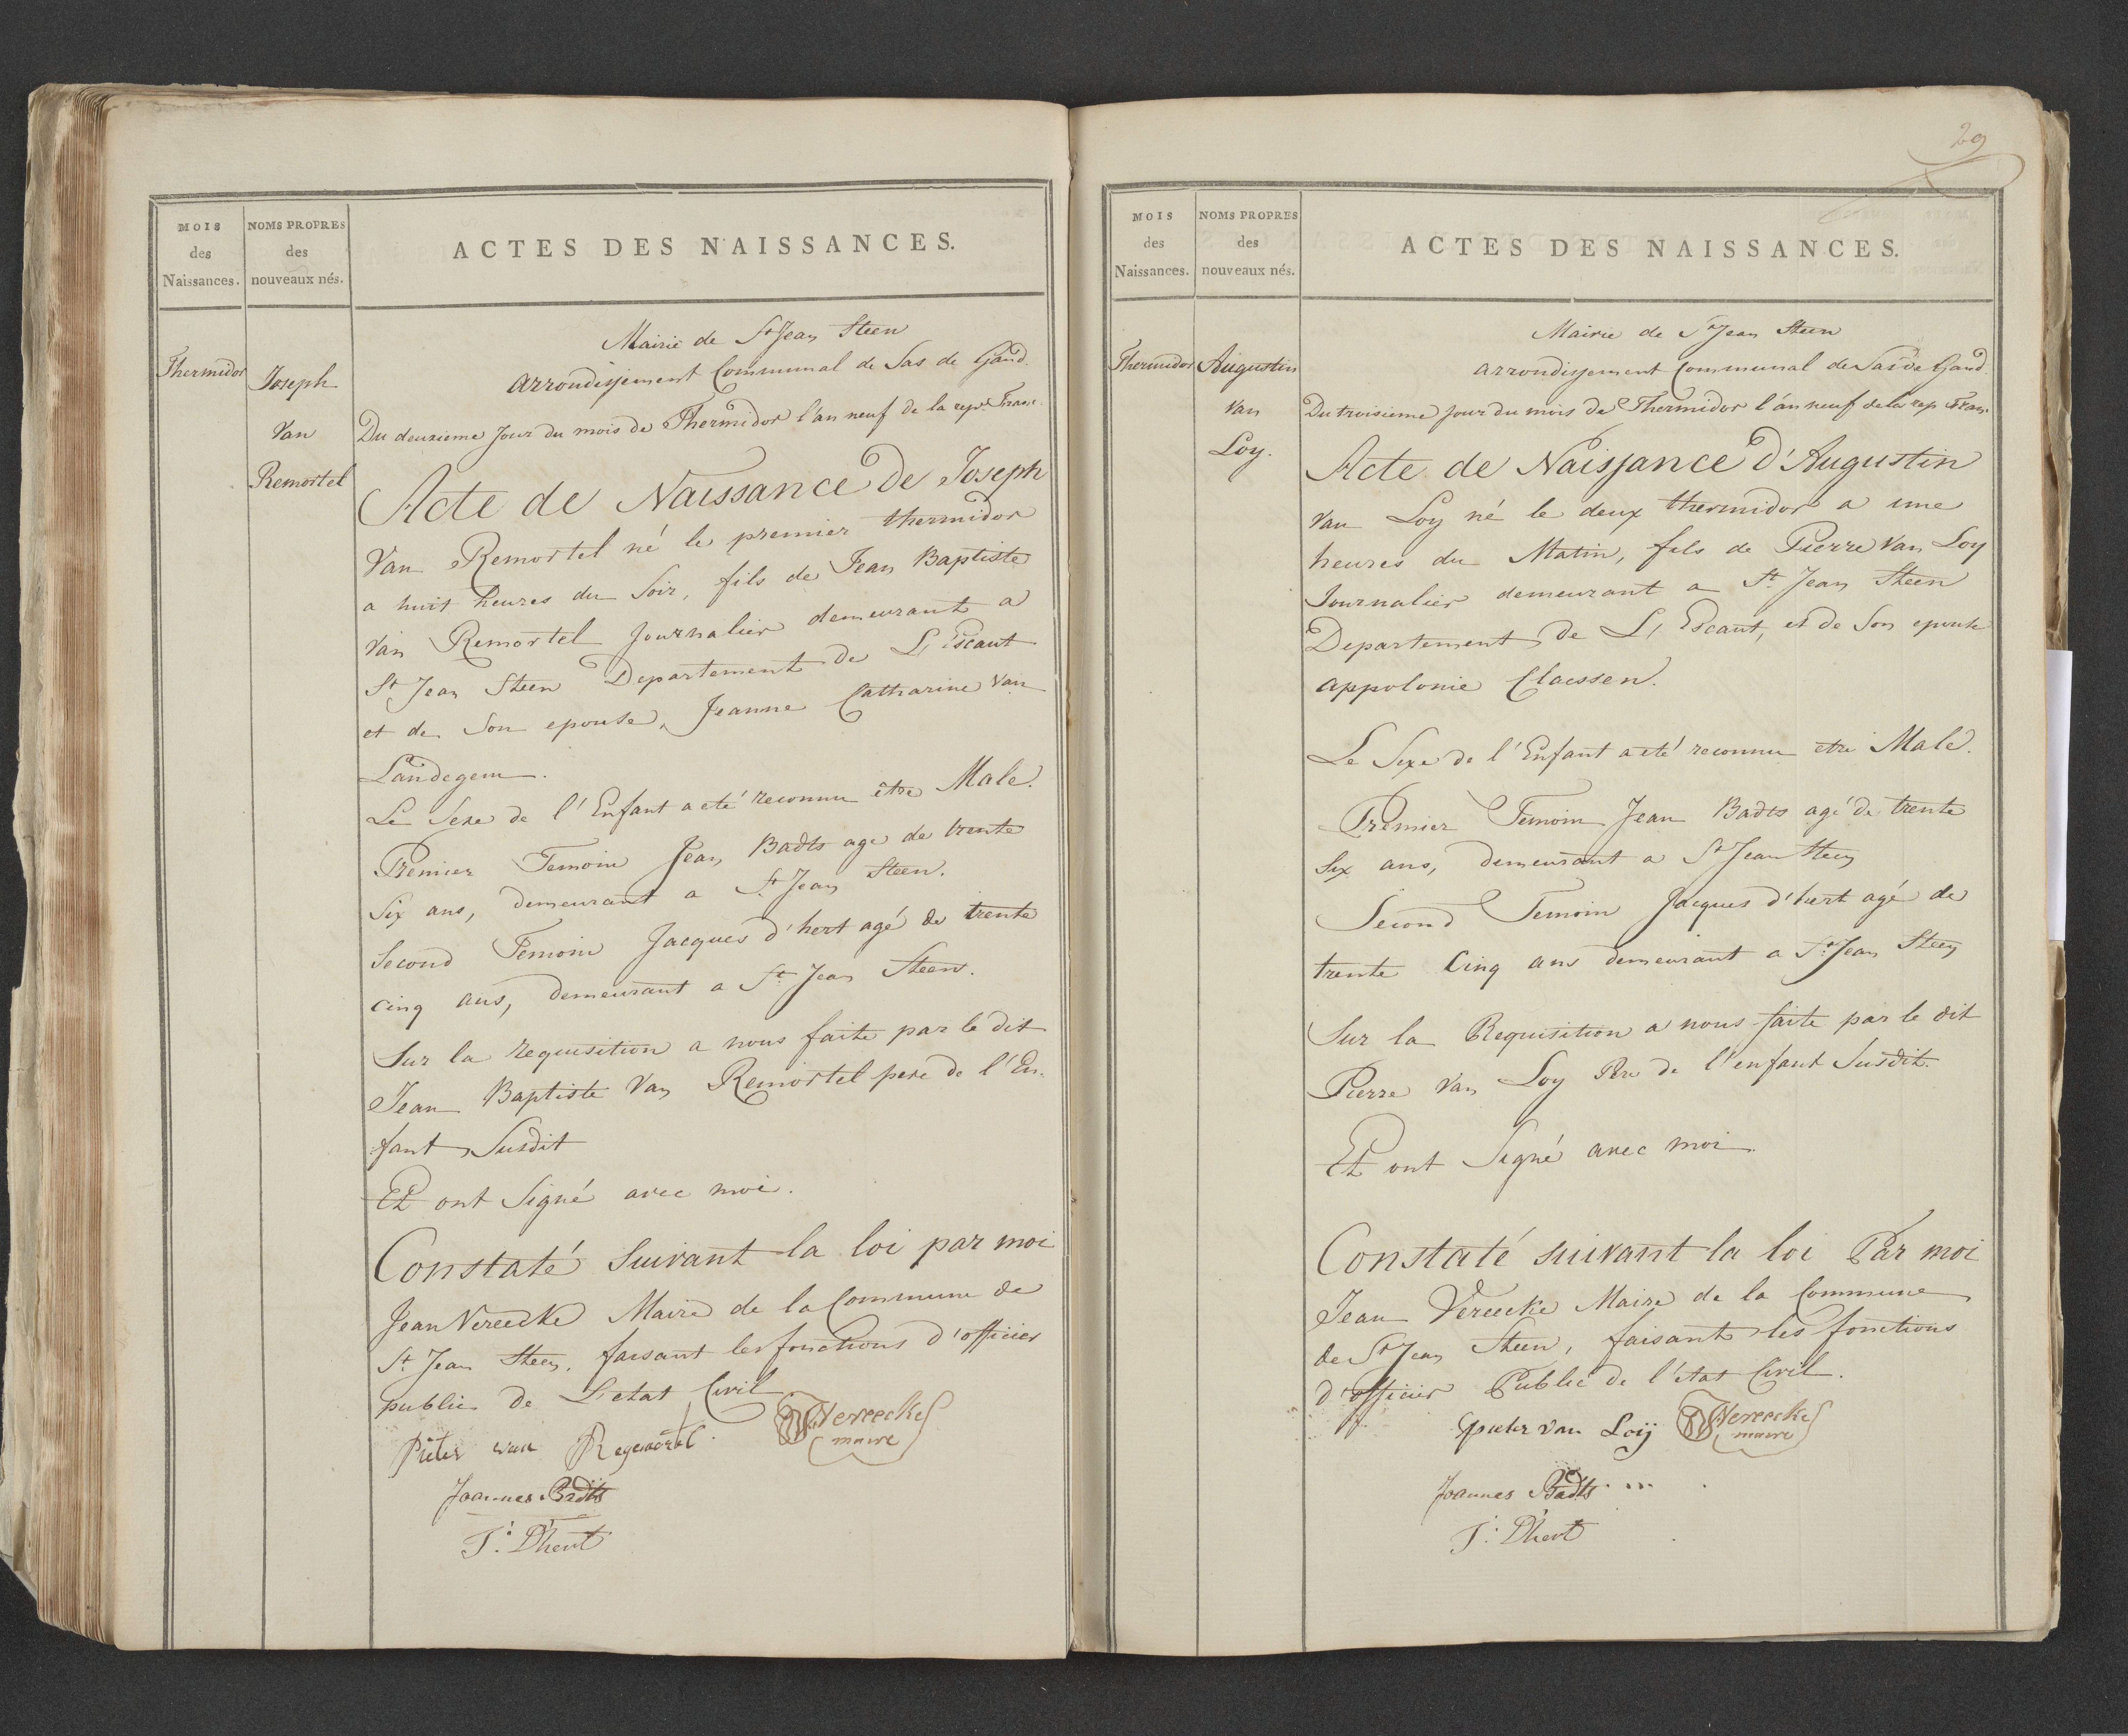 MOIS
des
Naissances.
NOMS PROPRES
des
nouveaux nés.
ACTES DES NAISSANCES.
Mairie de St Jean Steen
arrondissement Communal de Sas de Gand.
Thermidor
Joseph
Van
Remortel
Du deuxieme jour du mois de Thermidor l'an neuf de la rep. Franc.
Acte de Naissance De Joseph
Van Remortel né le premier thermidor
a huit heures du Soir, fils de Jean Baptiste
Van Remortel Journalier demeurant a
St Jean Steen Departement de L'Escaut
et de Son epouse, Jeanne Catharine Van
Landegem.
Le Sexe de l'Enfant a eté reconnu être Male.
Premier Temoin Jean Badts age de trente
Six ans, demeurant a St Jean Steen.
Second Temoin Jacques d'hert agé de trente
cinq ans, demeurant a St Jean Steen.
Sur la requisition a nous faite par le dit
Jean Baptiste Van Remortel pere de l'En-
fant Susdit
Et ont Signé avec moi.
Constaté Suivant la loi par moi
Jean Vereecke Maire de la Commune de
St Jean Steen, faisant les fonctions d'officier
public de L'etat Civil
Vereecke
maire
Pieter van
Joannes Badts
J: D'hert
29
MOIS
des
Naissances.
NOMS PROPRES
des
nouveaux nés.
ACTES DES NAISSANCES.
Mairie de St Jean Steen
arrondissement Communal de Sas de Gand.
Thermidor
Augustin
Van
Loy.
Du troisieme jour du mois de Thermidor l'an neuf de la rep Fran.
Acte de Naissance d'Augustin
Van Loy né le deux thermidor a une
heures du Matin, fils de Pierre Van Loy
Journalier demeurant a St Jean Steen
Departement de L'Escaut, et de Son epouse
appolonie Claessen.
Le Sexe de l'Enfant a eté reconnu etre Male.
Premier Temoin Jean Badts agé de trente
Six ans, demeurant a St Jean Steen
Second Temoin Jacques d'hert agé de
trente Cinq ans demeurant a St Jean Steen
Sur la Requisition a nous faite par le dit
Pierre Van Loy Pere de l'enfant Susdit.
Et ont Signé avec moi.
Constaté suivant la loi Par moi
Jean Vereecke Maire de la Commune
de St Jean Steen, faisant les fonctions
d'officier Public de l'état Civil.
pieter van Loij
Vereecke
maire
Joannes Badts
J: D'hert